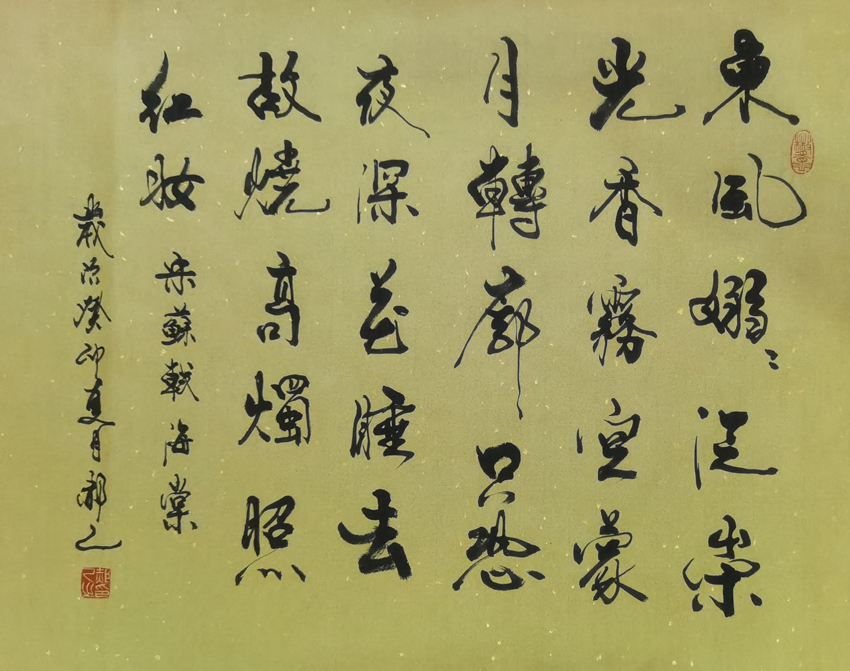 東風嫋〻泛崇
光香霧空蒙
月轉廊只恐
夜深花睡去
故燒高燭照
紅妝 宋蘇軾海棠
歲次癸卯夏月